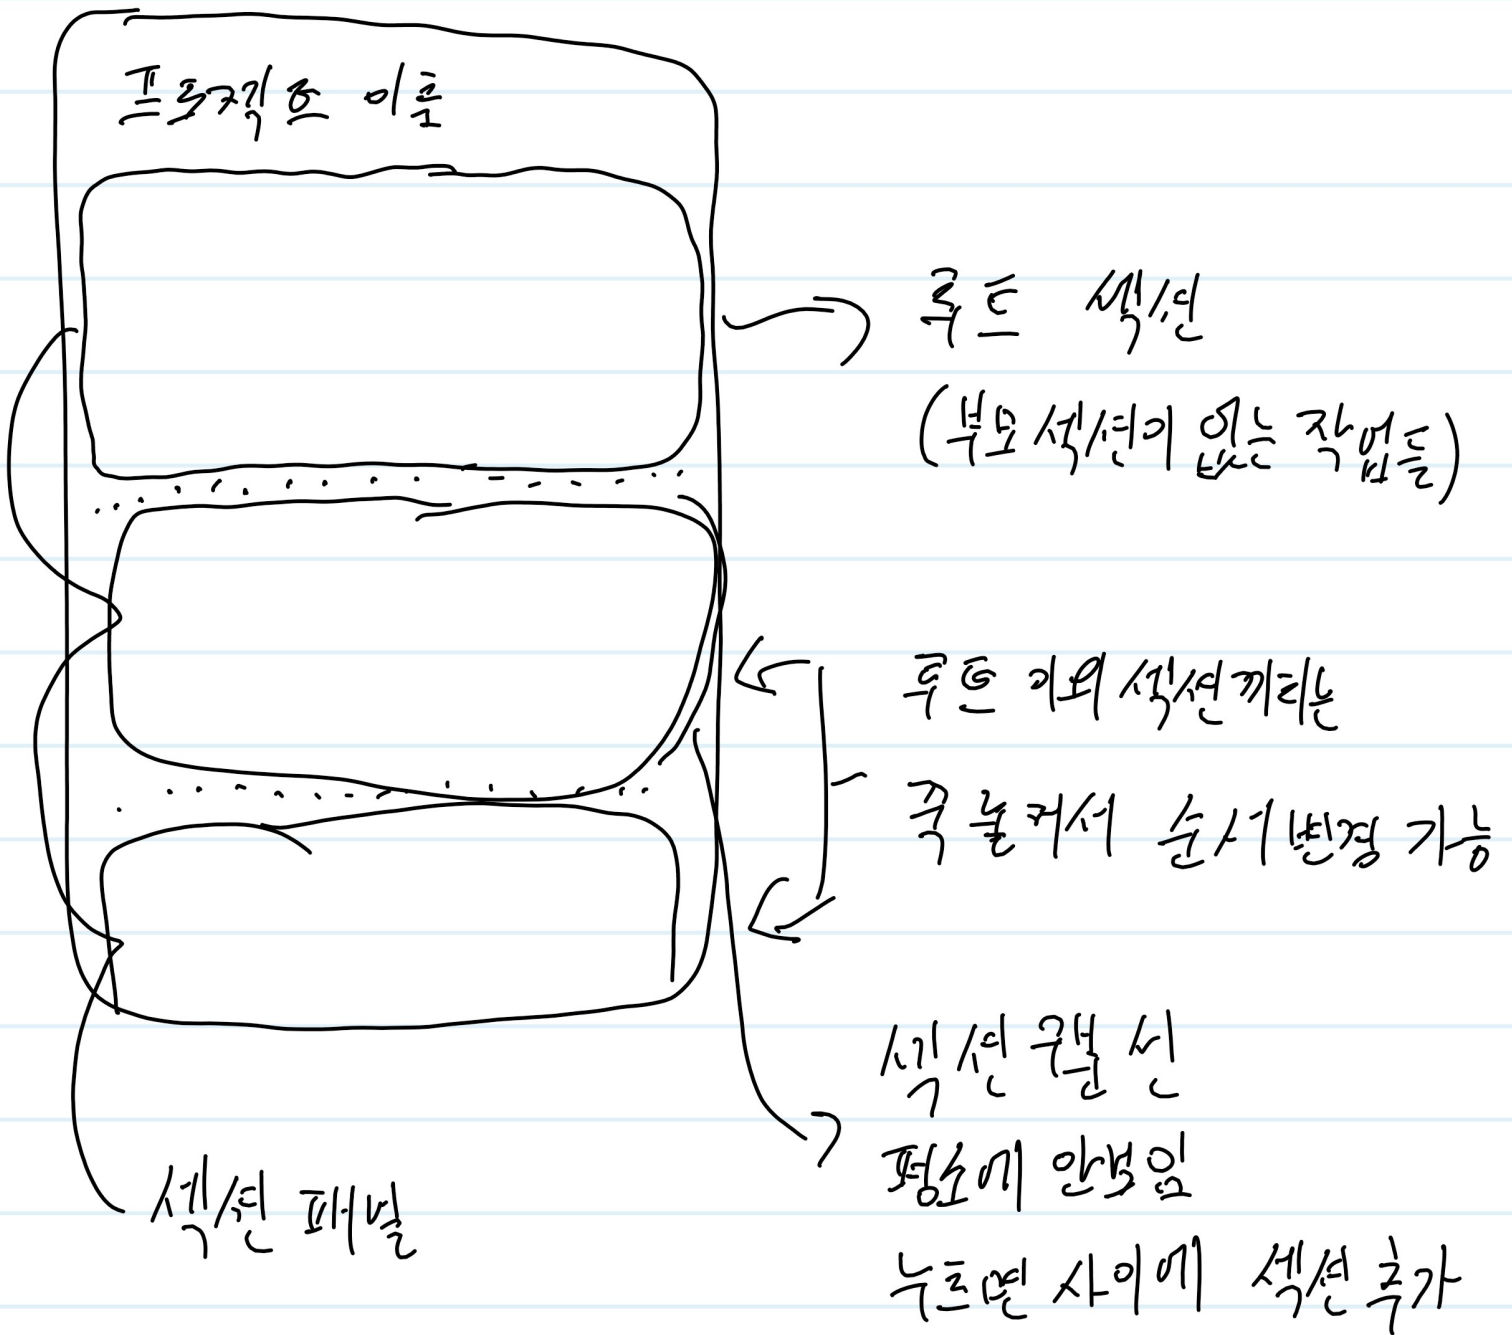 프로젝트 이름
루트 섹션
(부모 섹션이 없는 작업들)
루트 이외 섹션끼리는
꾹 눌러서 순서 변경 가능
섹션 구분 선
평소에 안보임
누르면 사이에 섹션 추가
섹션 패널